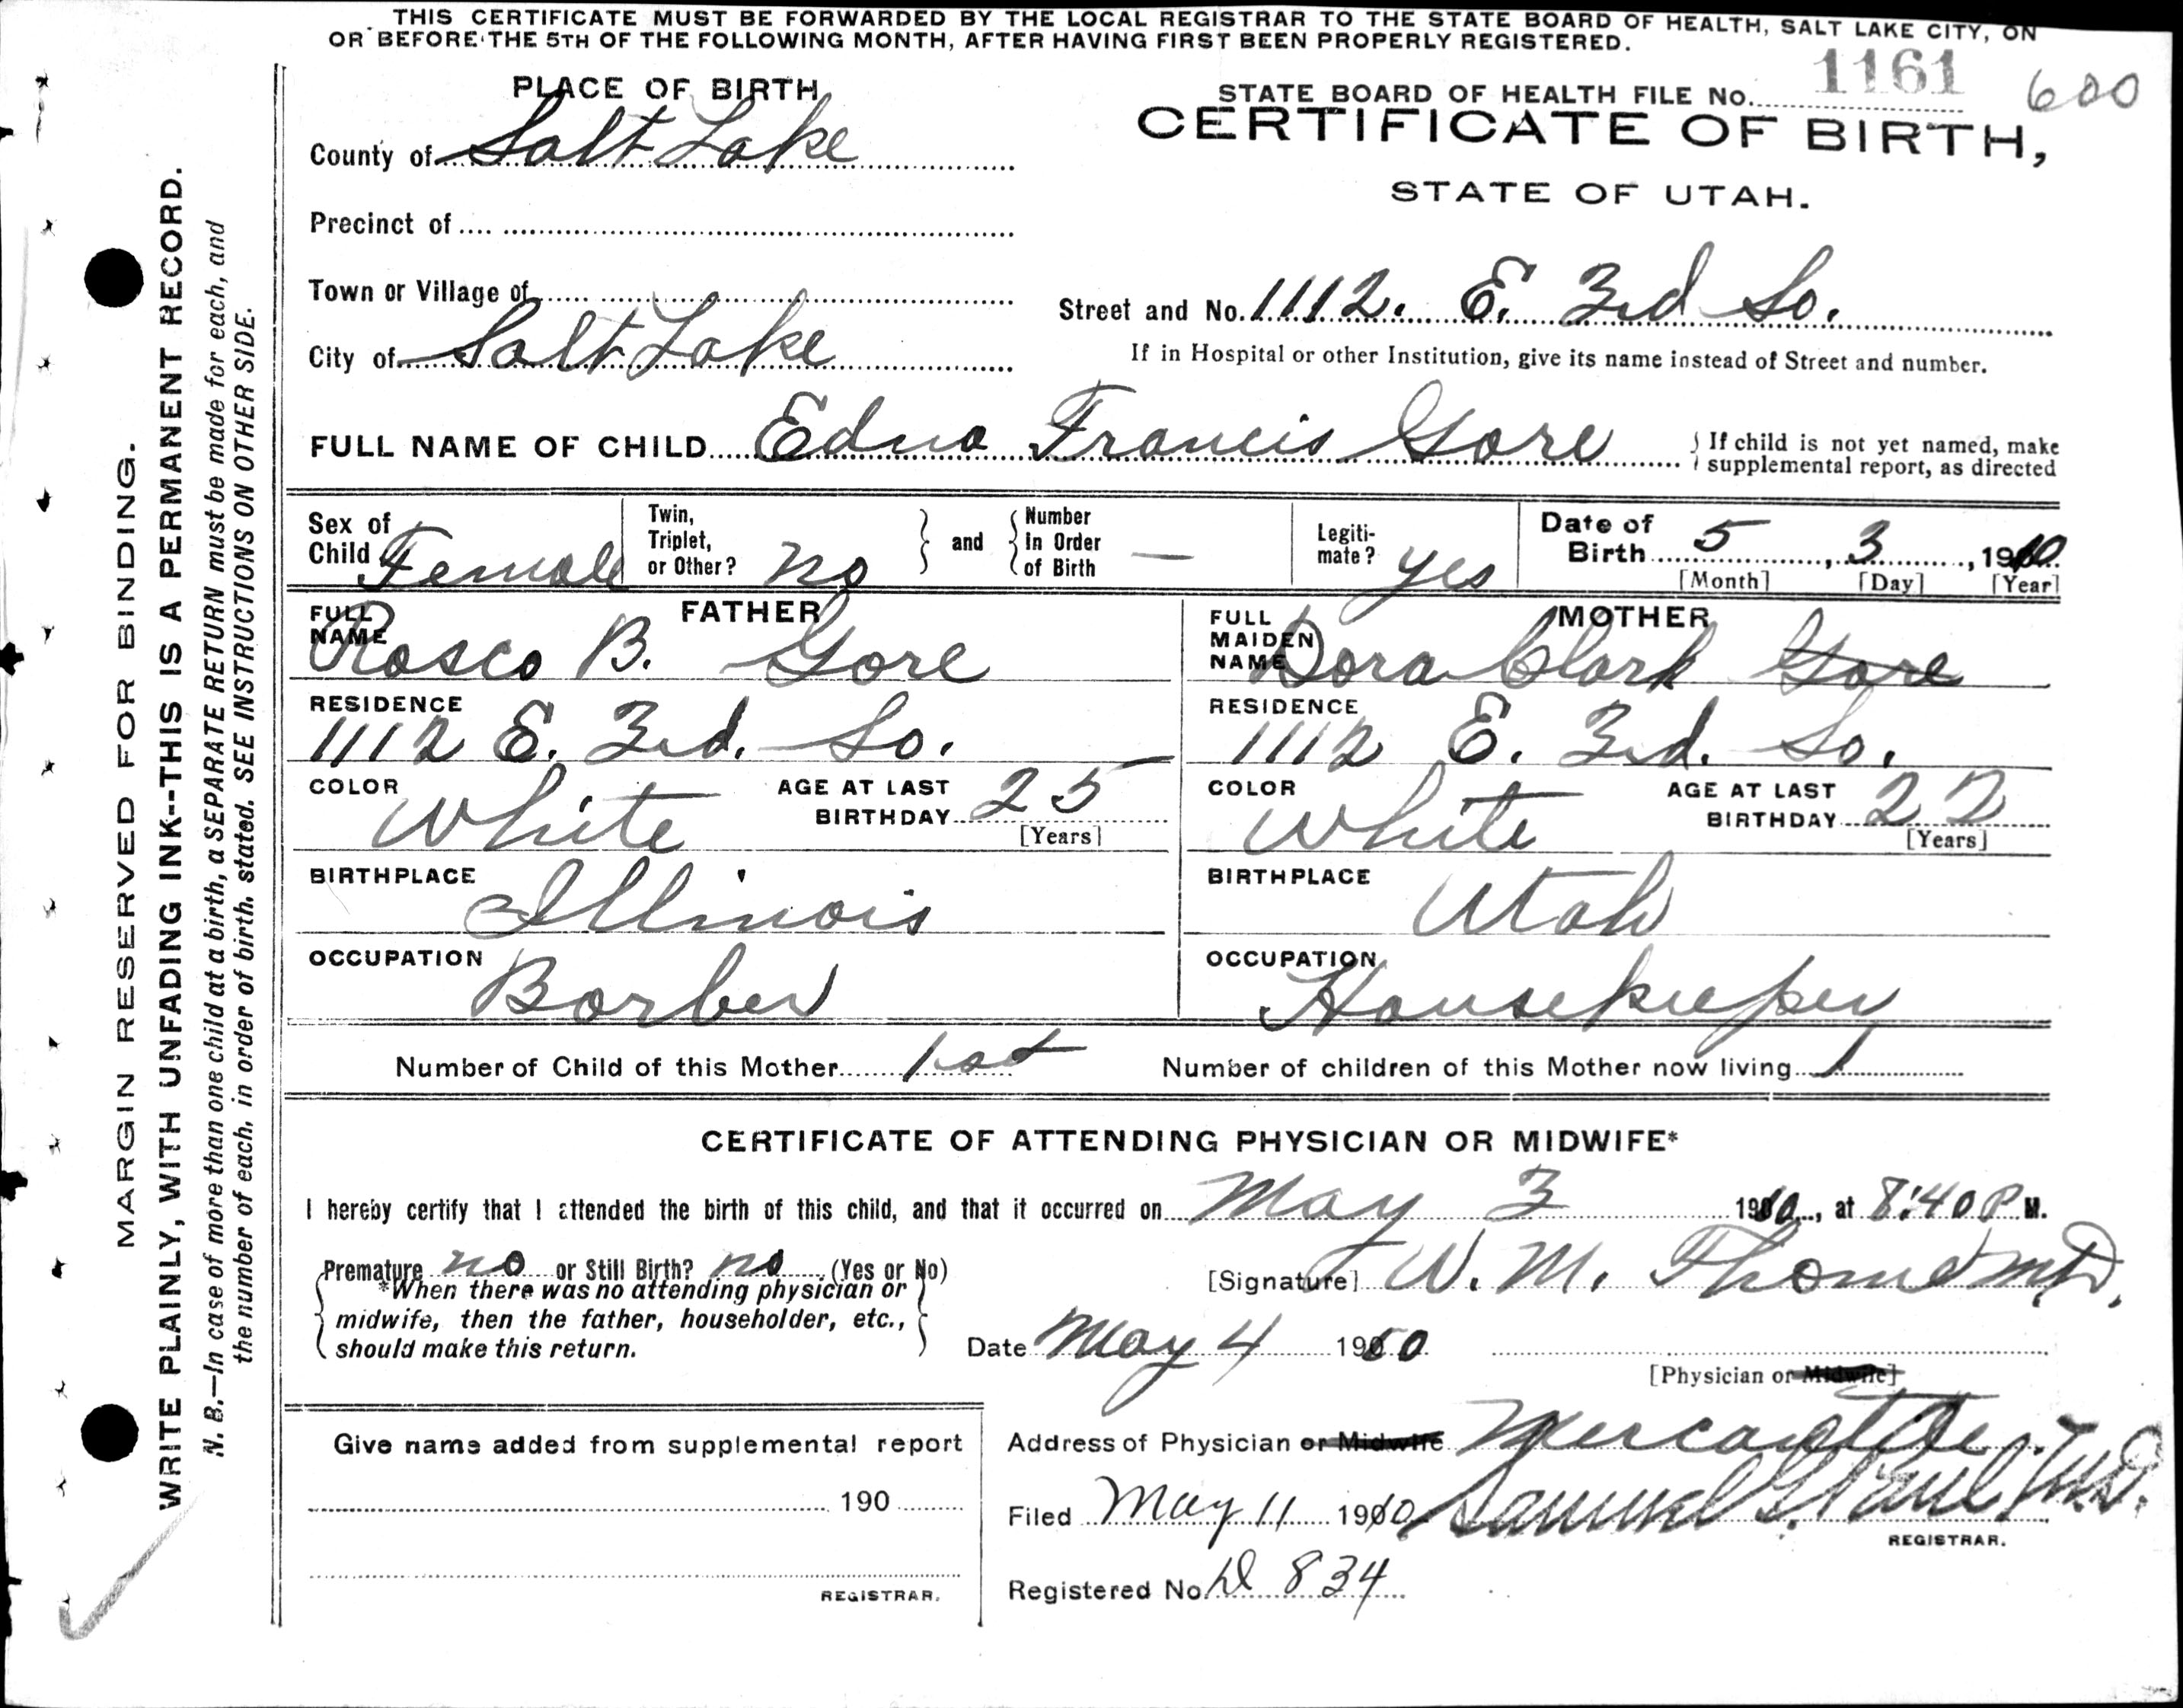 THIS CERTIFICATE MUST BE FORWARDED BY THE LOCAL REGISTRAR TO THE STATE BOARD OF HEALTH, SALT LAKE CITY, ON
OR BEFORE THE 5TH OF THE FOLLOWING MONTH, AFTER HAVING FIRST BEEN PROPERLY REGISTERED.
PLACE OF BIRTH
STATE BOARD OF HEALTH FILE No. 1161 600
CERTIFICATE OF BIRTH,
STATE OF UTAH.
County of Salt Lake
Precinct of
Town or Village of
Street and No. 1112. E. 3rd So.
City of Salt Lake
If in Hospital or other Institution, give its name instead of Street and number.
FULL NAME OF CHILD Edna Francis Gore
If child is not yet named, make
supplemental report, as directed
Sex of Child Female
Twin, Triplet, or Other? no
and Number In Order of Birth —
Legiti-mate? yes
Date of Birth 5, 3, 1910
[Month] [Day] [Year]
FATHER
FULL NAME Rosco B. Gore
RESIDENCE
1112 E. 3rd. So.
COLOR White
AGE AT LAST BIRTHDAY 25
[Years]
BIRTHPLACE
Illinois
OCCUPATION
Barber
MOTHER
FULL MAIDEN NAME Dora Clark Gore
RESIDENCE
1112 E. 3rd. So.
COLOR White
AGE AT LAST BIRTHDAY 22
[Years]
BIRTHPLACE
Utah
OCCUPATION
Housekeeper
Number of Child of this Mother 1st
Number of children of this Mother now living 1
CERTIFICATE OF ATTENDING PHYSICIAN OR MIDWIFE*
I hereby certify that I attended the birth of this child, and that it occurred on May 3 1910, at 8:40 P M.
Premature no or Still Birth? no (Yes or No)
[Signature] W. M. Thome M.D.
*When there was no attending physician or
midwife, then the father, householder, etc.,
should make this return.
Date May 4 1910
[Physician or Midwife]
Give name added from supplemental report
190
REGISTRAR.
Address of Physician or Midwife Mercantile
Filed May 11 1910 Samuel G. Paul M.D.
REGISTRAR.
Registered No. 834
MARGIN RESERVED FOR BINDING.
WRITE PLAINLY, WITH UNFADING INK--THIS IS A PERMANENT RECORD.
N. B.—In case of more than one child at a birth, a SEPARATE RETURN must be made for each, and
the number of each, in order of birth, stated. SEE INSTRUCTIONS ON OTHER SIDE.